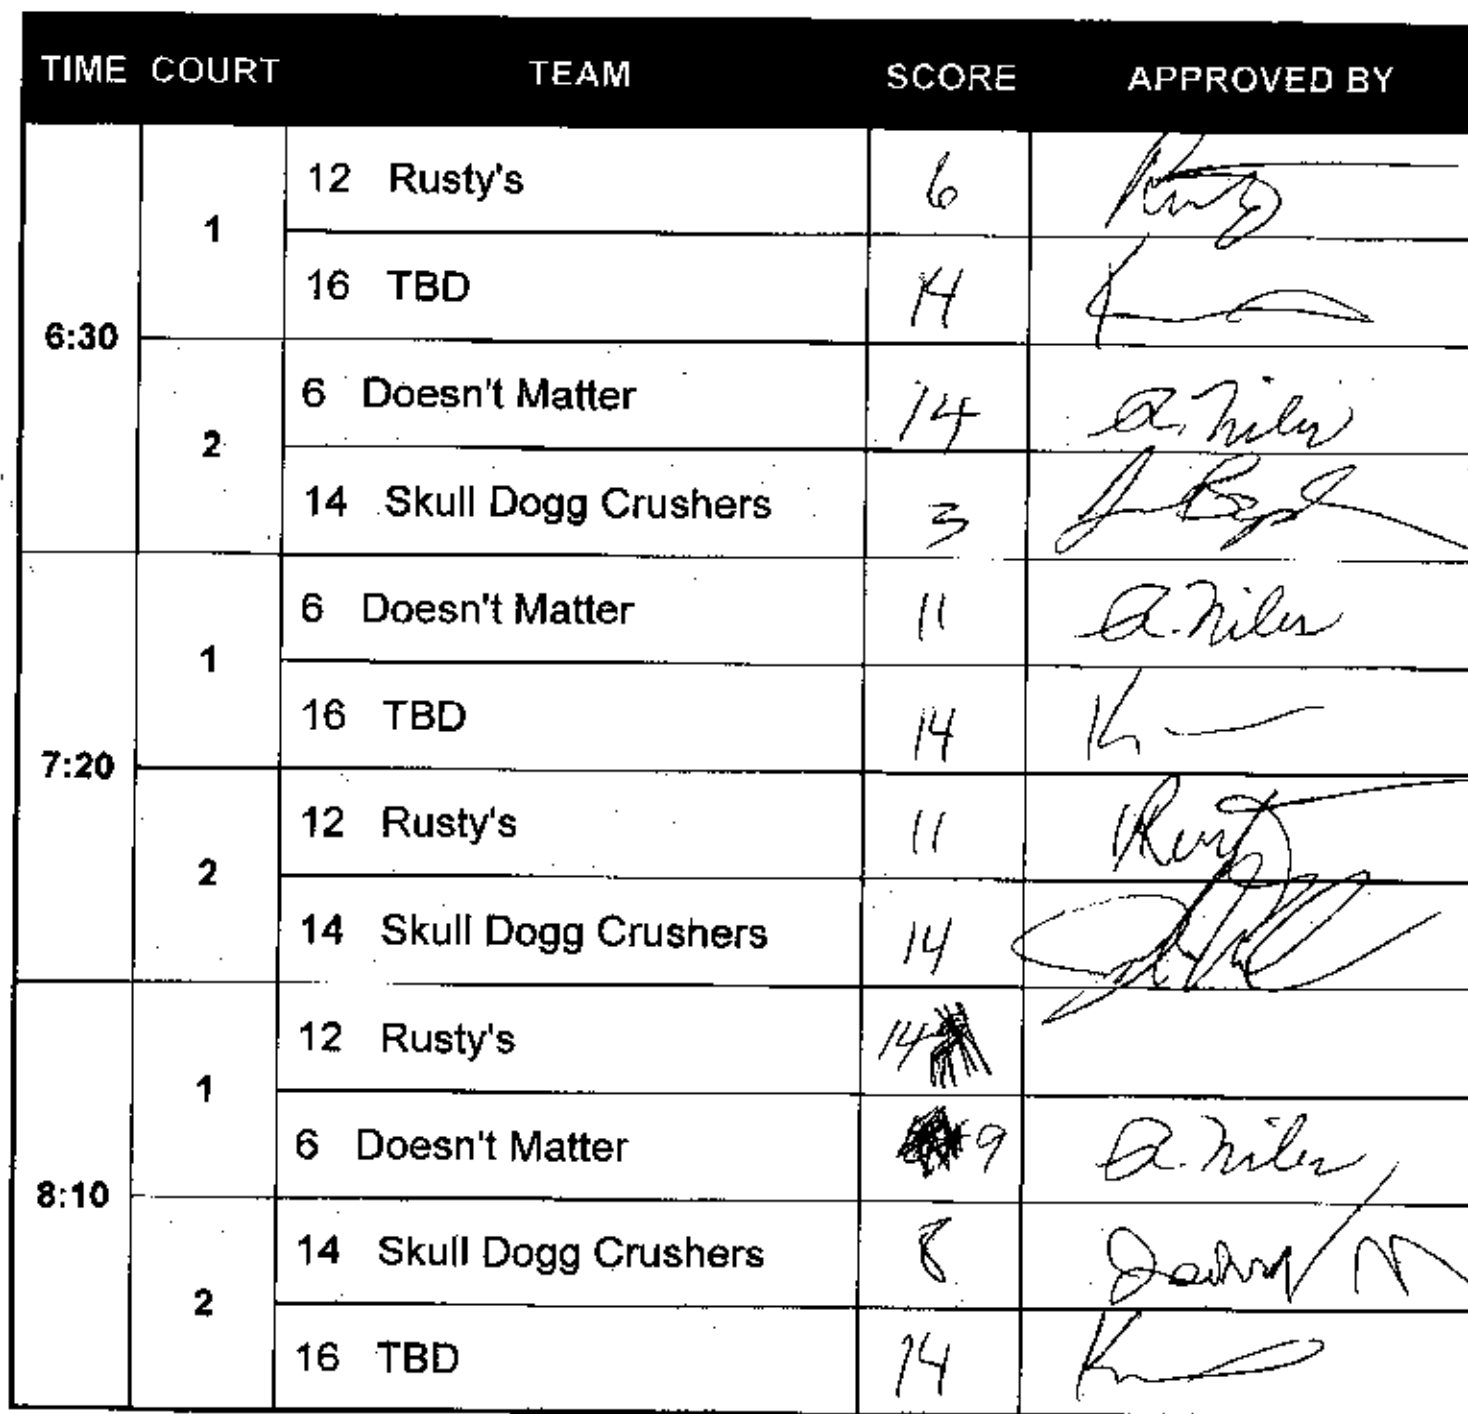 TIME COURT TEAM SCORE APPROVED BY
12 Rusty's 6
1
16 TBD 14
6:30
6 Doesn't Matter 14 a. Niles
2
14 Skull Dogg Crushers 3
6 Doesn't Matter 11 a. Niles
1
16 TBD 14
7:20
12 Rusty's 11
2
14 Skull Dogg Crushers 14
12 Rusty's 14
1
6 Doesn't Matter 9 a. Niles
8:10
14 Skull Dogg Crushers 8
2
16 TBD 14